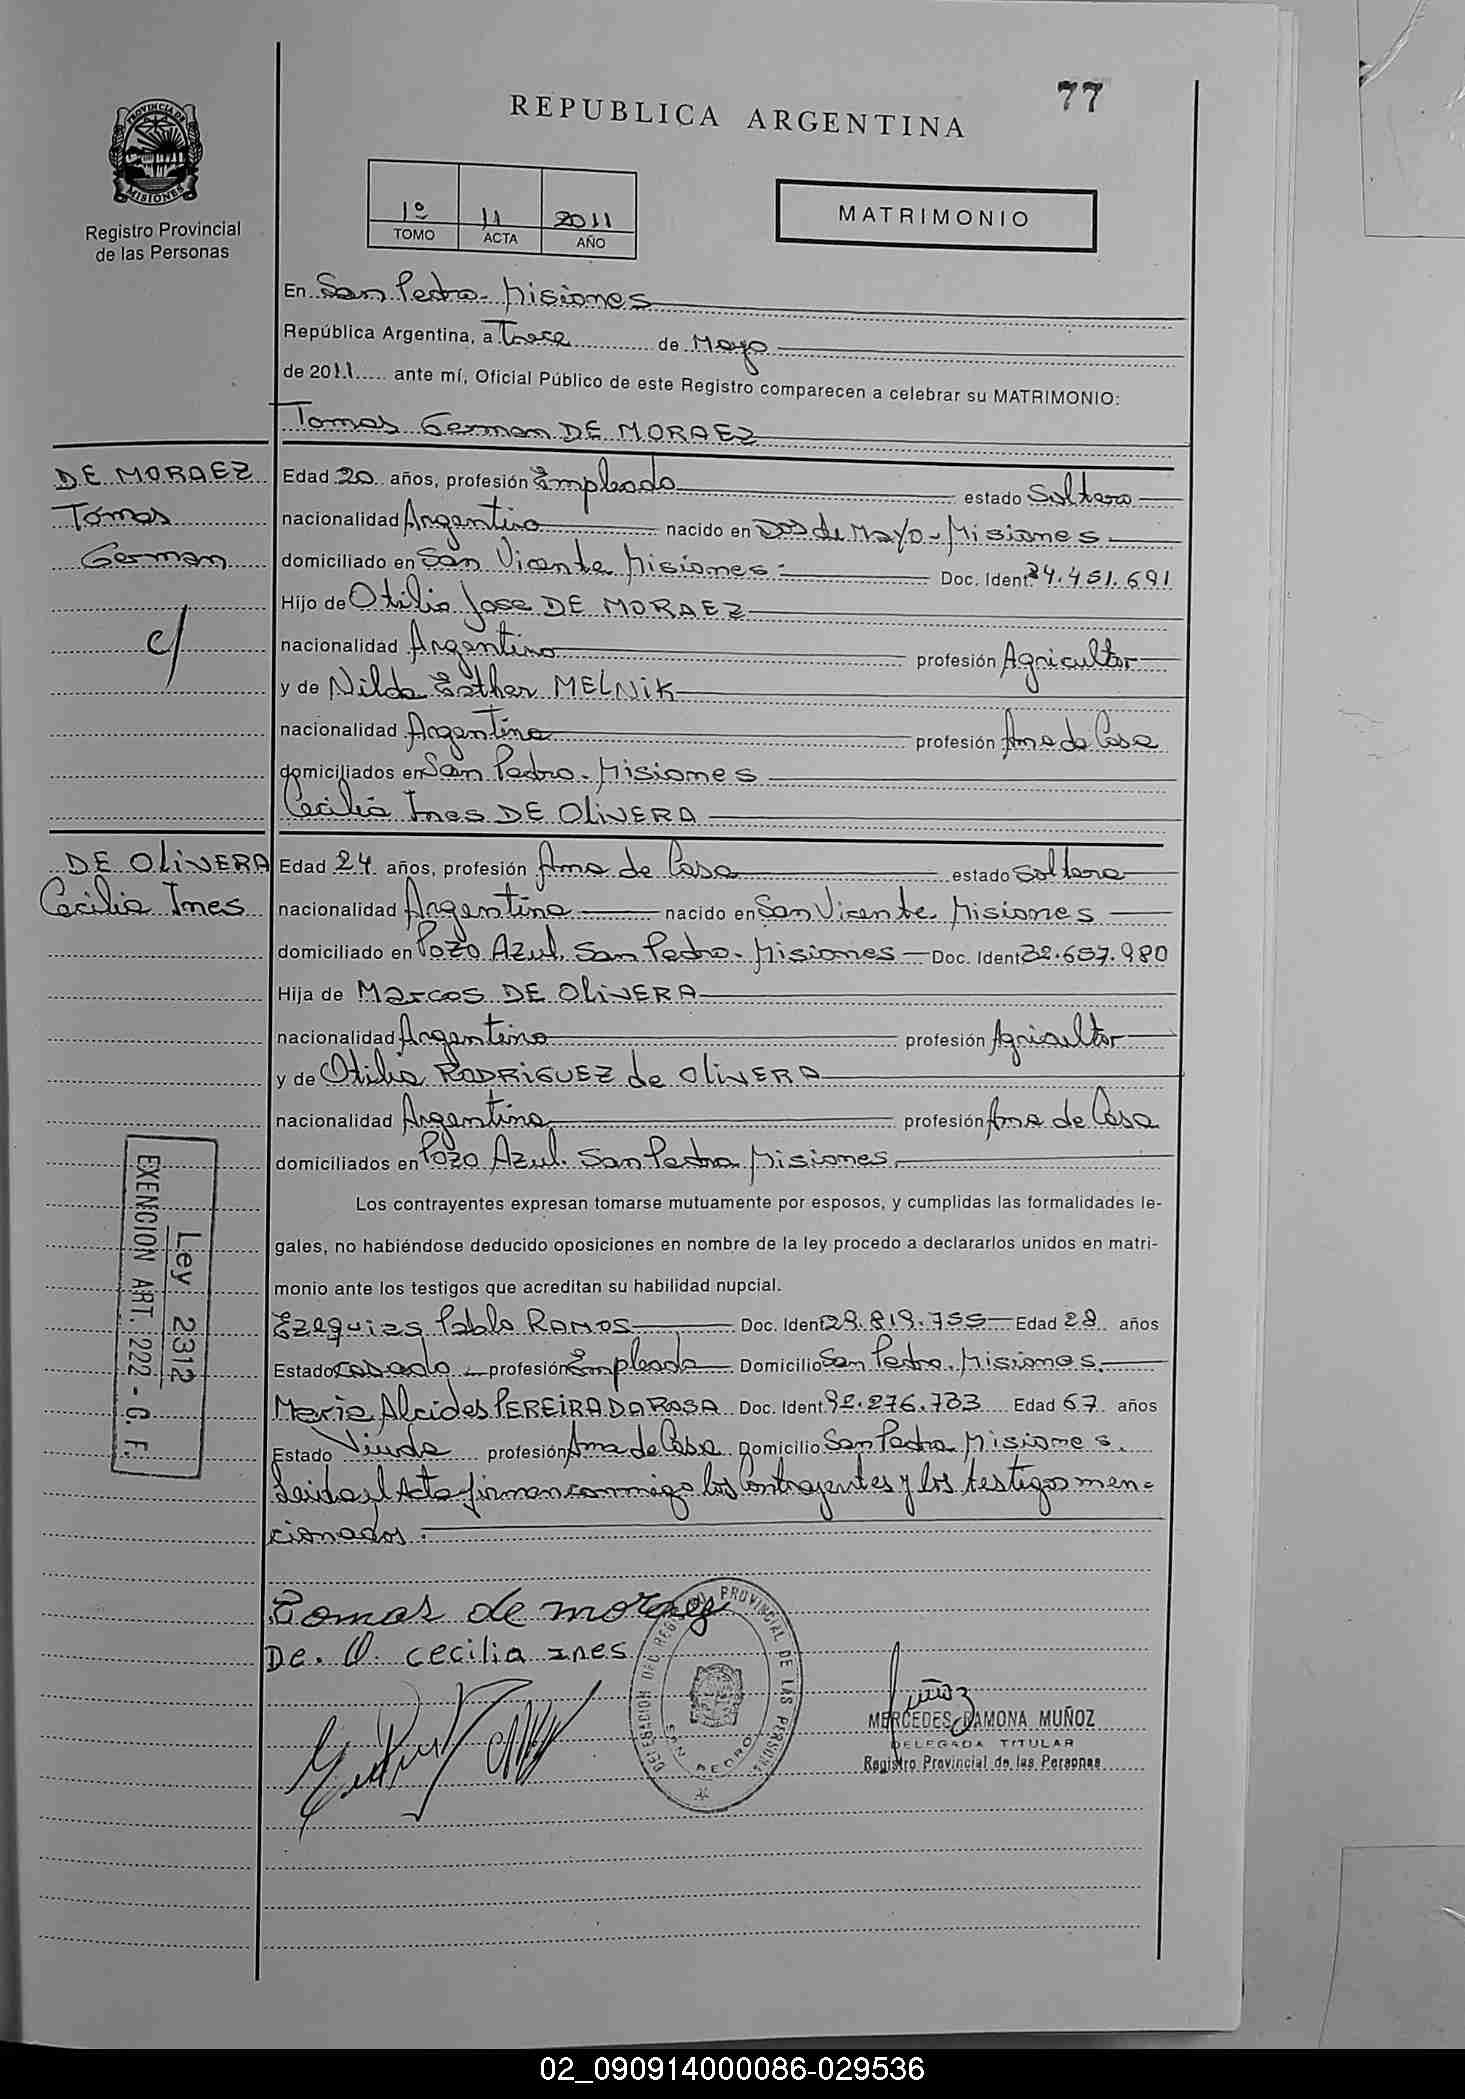 77
REPUBLICA ARGENTINA
PROVINCIA DE MISIONES
Registro Provincial
de las Personas
1º 11 2011
TOMO ACTA AÑO
MATRIMONIO
En San Pedro - Misiones
República Argentina, a Trece de Mayo
de 2011 ante mí, Oficial Público de este Registro comparecen a celebrar su MATRIMONIO:
Tomas German DE MORAEZ
DE MORAEZ
Tomas
German
c/
Edad 20 años, profesión Empleado estado Soltero
nacionalidad Argentino nacido en Dos de Mayo - Misiones
domiciliado en San Vicente Misiones Doc. Ident. 34.451.691
Hijo de Otilio Jose DE MORAEZ
nacionalidad Argentino profesión Agricultor
y de Nilda Esther MELNIK
nacionalidad Argentina profesión Ama de Casa
domiciliados en San Pedro - Misiones
Cecilia Ines DE OLIVERA
DE OLIVERA
Cecilia Ines
Edad 24 años, profesión Ama de Casa estado Soltera
nacionalidad Argentina nacido en San Vicente Misiones
domiciliado en Pozo Azul, San Pedro - Misiones Doc. Ident 32.657.980
Hija de Marcos DE OLIVERA
nacionalidad Argentino profesión Agricultor
y de Otilia RODRIGUEZ de OLIVERA
nacionalidad Argentina profesión Ama de Casa
domiciliados en Pozo Azul. San Pedro Misiones
Los contrayentes expresan tomarse mutuamente por esposos, y cumplidas las formalidades le-
gales, no habiéndose deducido oposiciones en nombre de la ley procedo a declararlos unidos en matri-
monio ante los testigos que acreditan su habilidad nupcial.
Pablo RAMOS Doc. Ident 29.819.755 Edad 28 años
Estado casado profesión Empleado Domicilio San Pedro. Misiones.
Maria Alcides PEREIRA DA ROSA Doc. Ident. 92.276.733 Edad 67 años
Estado Viuda profesión Ama de Casa Domicilio San Pedro Misiones.
Leida el Acta firman conmigo los Contrayentes y los testigos men=
cionados.
Ley 2312
EXENCION ART. 222 - C. F.
Tomas de moraez
De. O. cecilia ines
DELEGACION DEL REGISTRO PROVINCIAL DE LAS PERSONAS
SAN PEDRO
Muñoz
MERCEDES RAMONA MUÑOZ
DELEGADA TITULAR
Registro Provincial de las Personas
02_090914000086-029536